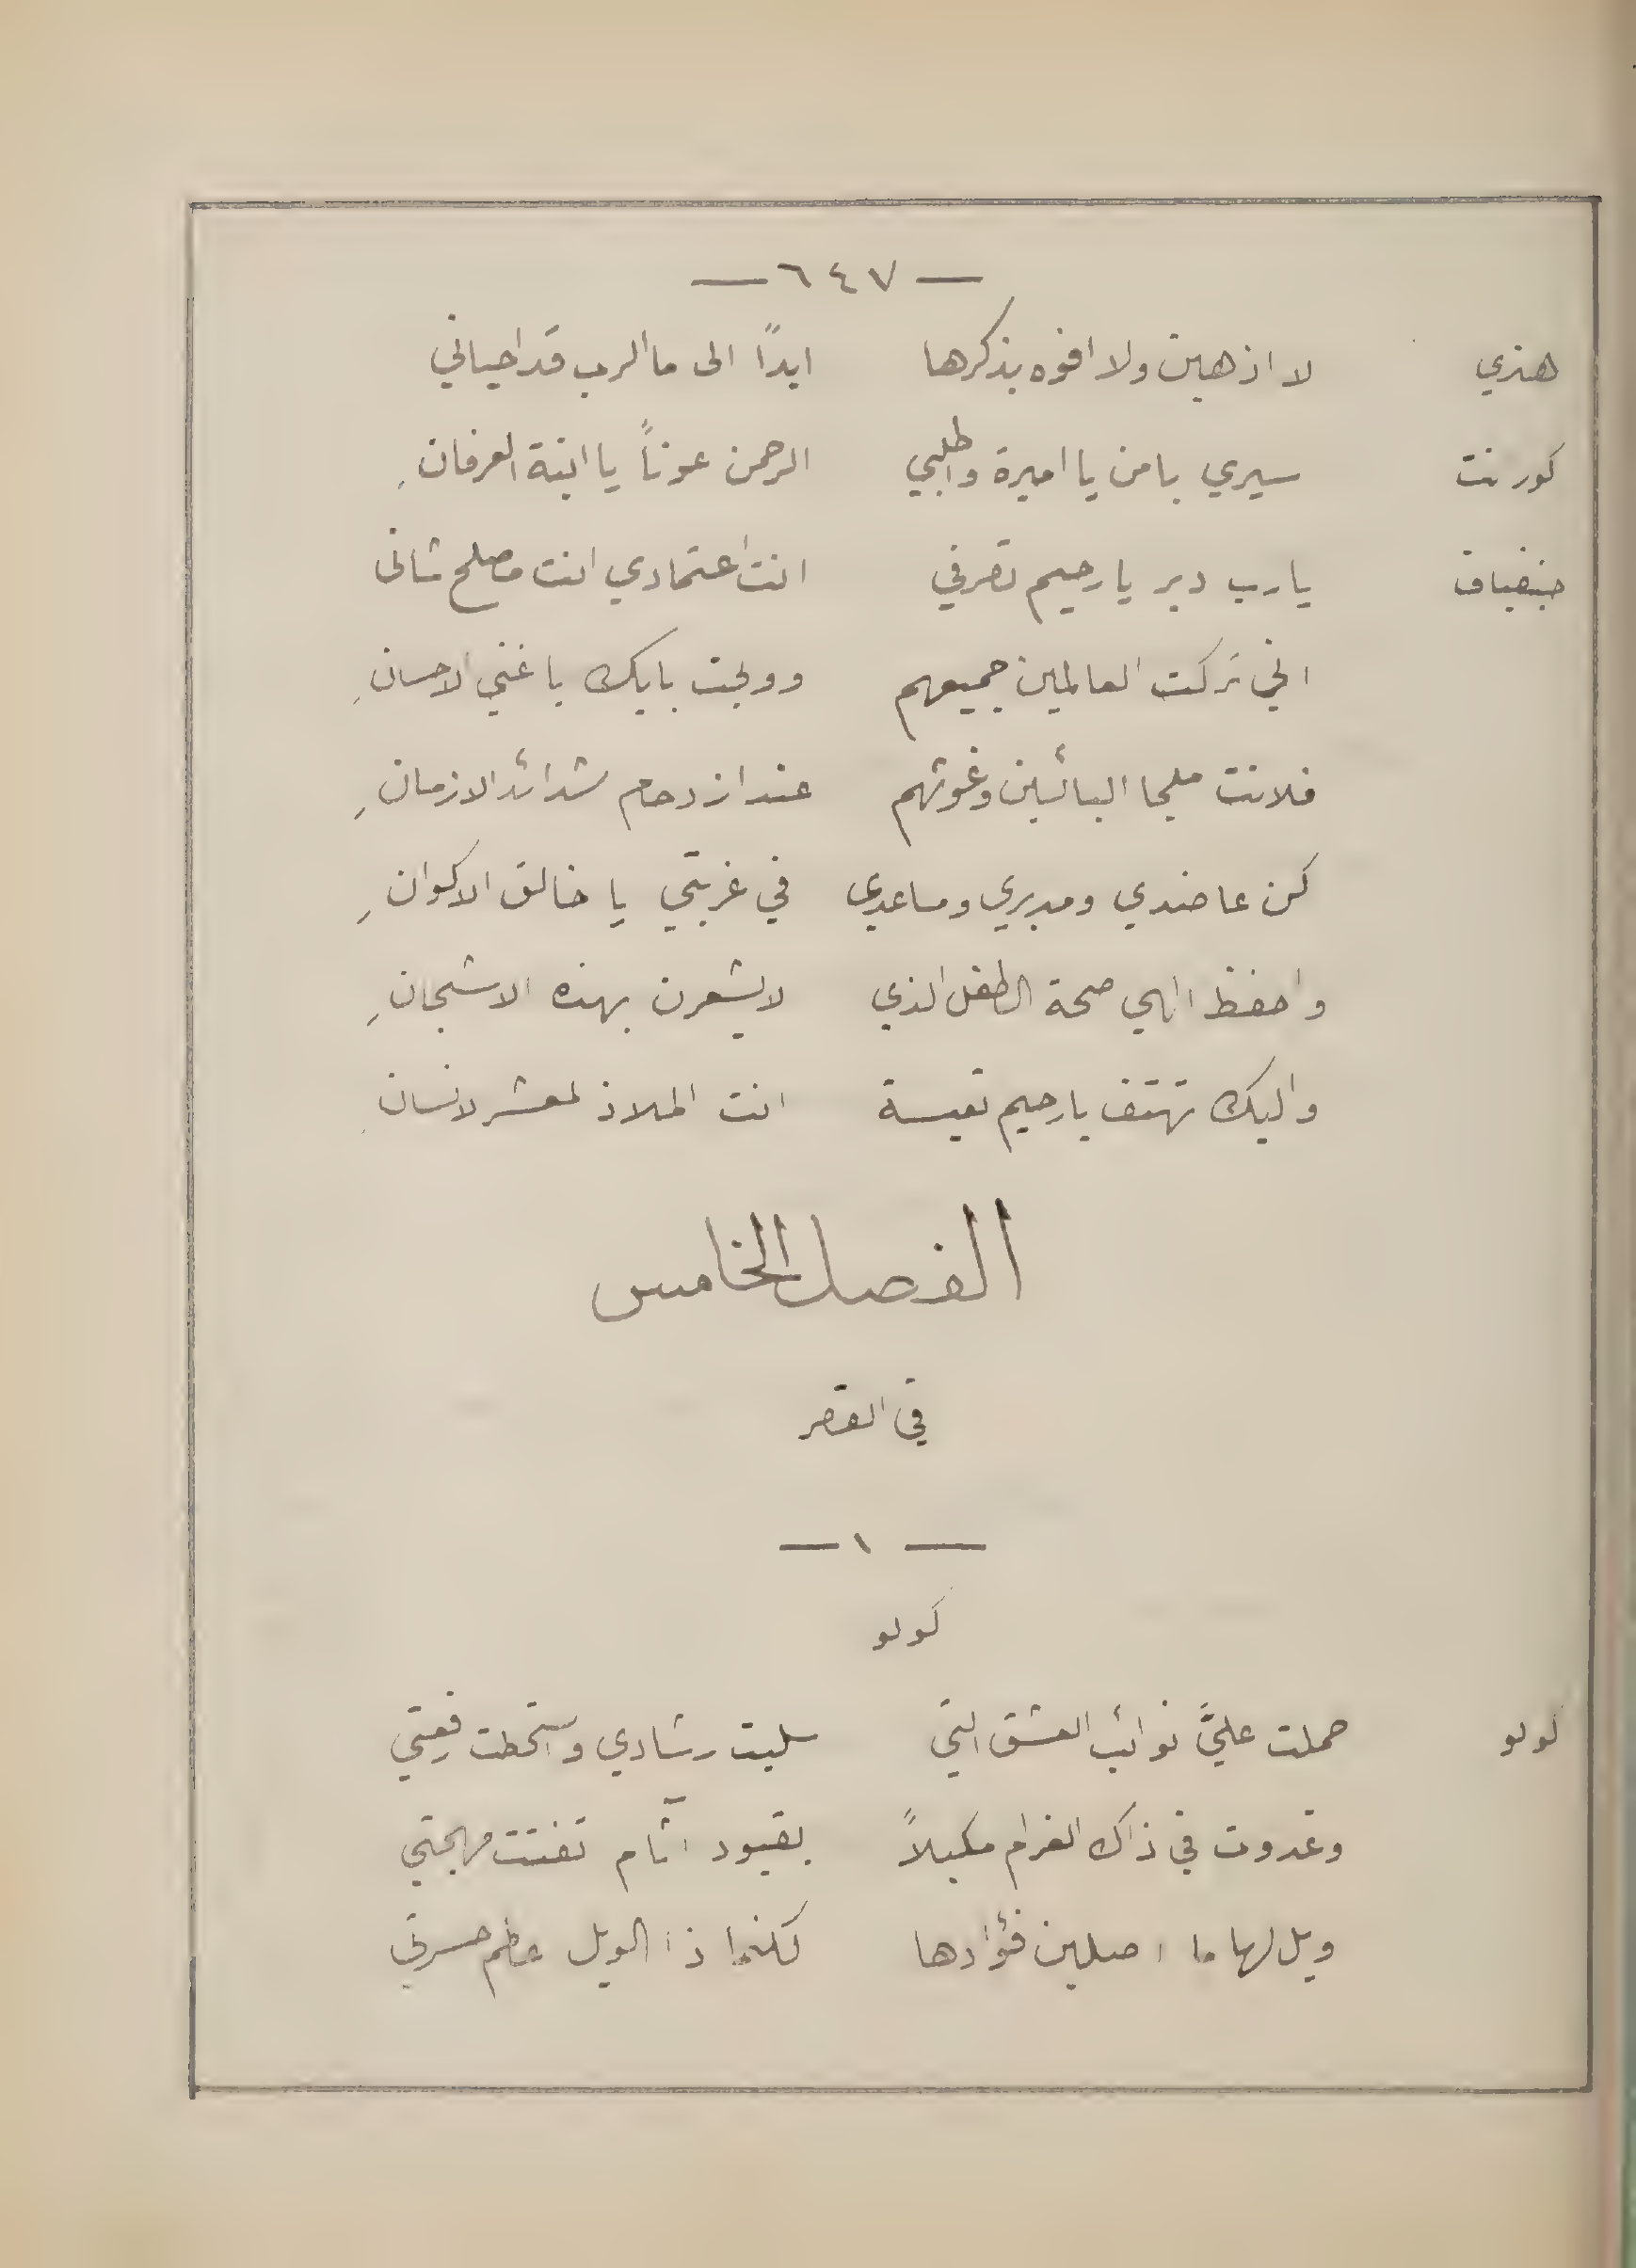 — ٦٤٧ —
هنري لا اذهبن ولا افوه بذكرها ابداً الى ما الرب قد احياني
كورنت سيري بامن يا اميرة واطلبي الرحمن عوناً يا ابنة العرفانِ
جنفياف يا رب دبر يا رحيم تصرفي انت اعتمادي انت مصلح شانى
اني تركت العالمين جميعهم وولجت بابك يا غني الاحسانِ
فلانت ملجا البائسين وغوثهم عند ازدحام شدائد الازمانِ
كن عاضدي ومدبري ومساعدي في غربتي يا خالق الاكوانِ
واحفظ الهي صحة الطفل الذي لا يشعرن بهذه الاشجانِ
واليك تهتف يا رحيم تعيسة انت الملاذ لمعشر لانسانِ
الفصل الخامس
في القصر
— ١ —
كولو
كولو حملت عليَّ نوائب العشق التي سلبت رشادي وستحطت رفعتي
وغدوت في ذاك الغرام مكبلاً بقيود آثام تفتت مهجتي
ويل لها ما اصلبن فؤادها لكنما ذا الويل عظم حسرتي